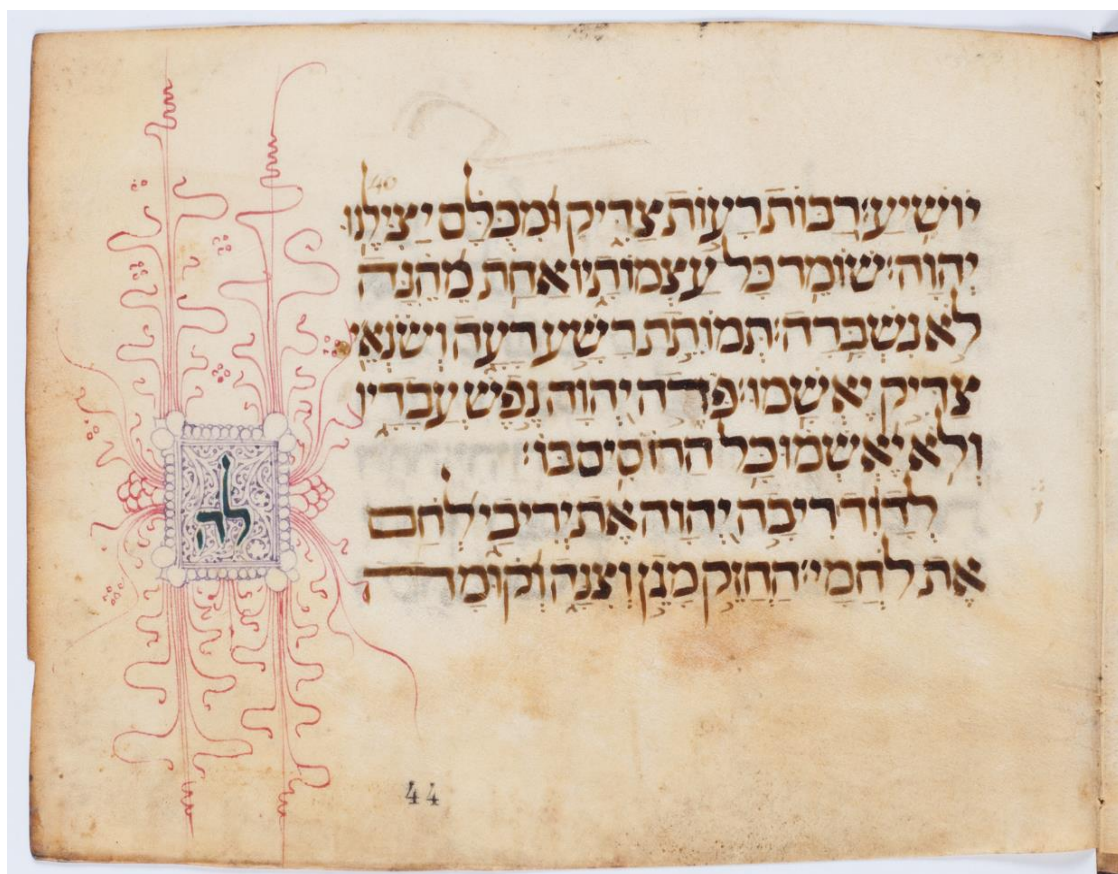 40
יוֹשִׁיעַ׃ רַבּוֹת רָעוֹת צַדִּיק וּמִכֻּלָּם יַצִּילֶנּוּ
יְהוָה׃ שׁוֹמֵר כָּל עַצְמוֹתָיו אַחַת מֵהֵנָּה
לֹא נִשְׁבָּרָה׃ תְּמוֹתֵת רָשָׁע רָעָה וְשֹׂנְאֵי
צַדִּיק יֶאְשָׁמוּ׃ פֹּדֶה יְהוָה נֶפֶשׁ עֲבָדָיו
וְלֹא יֶאְשְׁמוּ כָּל הַחֹסִים בּוֹ׃
לה
לְדָוִד רִיבָה יְהוָה אֶת יְרִיבַי לְחַם
אֶת לֹחֲמָי׃ הַחֲזֵק מָגֵן וְצִנָּה וְקוּמָה
44